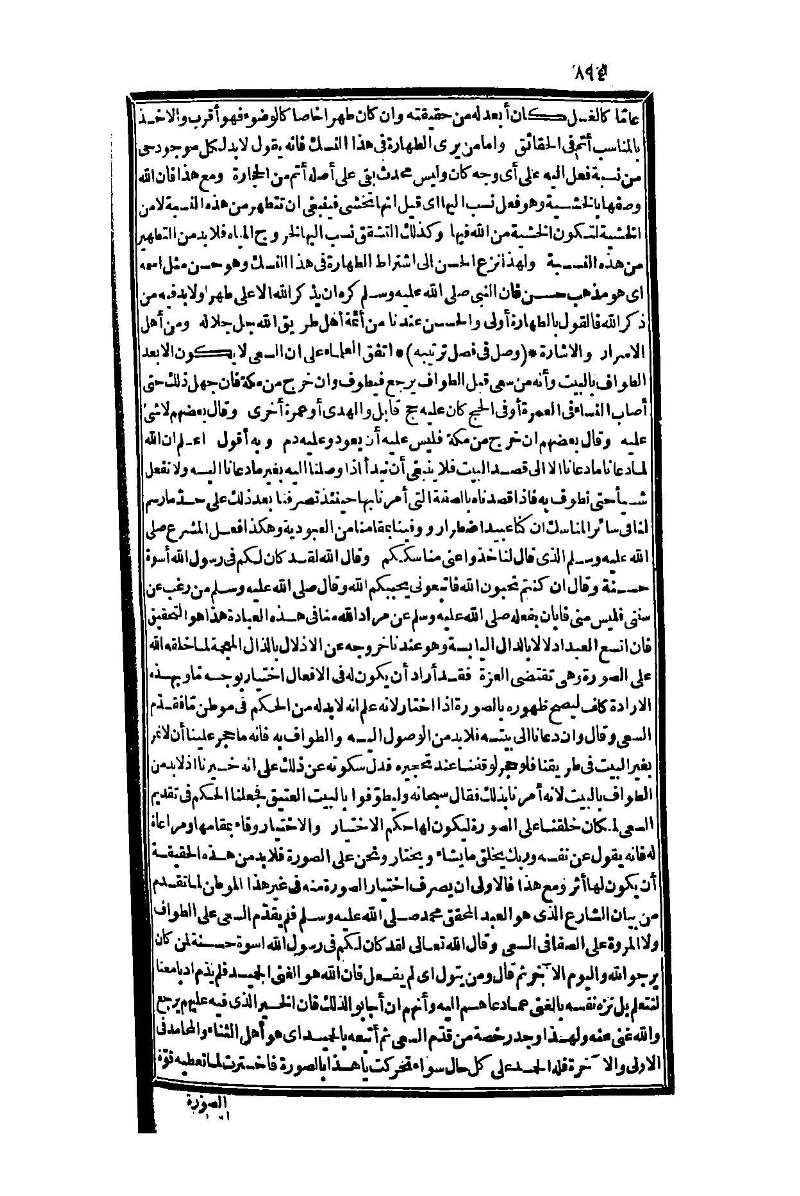 ٨٩٤
عاما كالغسل كان أبعد له من حقيقته وان كان طهرا خاصا كالوضوء فهو أقرب والاخذ
بالمناسب أتم فى الحقائق وامامن يرى الطهارة فى هذا النسك فانه يقول لابد لكل موجود حى
من نسبة فعل اليه على أى وجه كان وليس محدث بقى على أصله أتم من الحجارة ومع هذا فان الله
وصفها بالخشية وهو فعل نسب اليها اى قيل انها تخشى فينبغى ان تتطهر من هذه النسبة لا من
الخشية لتكون الخشية من الله فيها وكذلك التشقق نسب اليها لخروج المياه فلابد من التطهير
من هذه النسبة ولهذا نزع الحسن الى اشتراط الطهارة فى هذا النسك وهو حسن مثل اسمه
اى هو مذهب حسن فان النبى صلى الله عليه وسلم كره ان يذكر الله الا على طهر اولابد فيه من
ذكر الله فالقول بالطهارة أولى والحسن عندنا من أئمة أهل طريق الله جل جلاله ومن أهل
الاسرار والاشارة *(وصل فى فصل ترتيبه)* اتفق العلماء على ان السعى لا يكون الا بعد
الطواف بالبيت وأنه من سعى قبل الطواف يرجع فيطوف وان خرج من مكة فان جهل ذلك حتى
أصاب النساء فى العمرة أو فى الحج كان عليه حج قابل والهدى أو عمرة أخرى وقال بعضهم لاشئ
عليه وقال بعضهم ان خرج من مكة فليس عليه أن يعود وعليه دم وبه أقول اعلم ان الله
لمادعانا مادعانا الا الى قصد البيت فلا ينبغى أن نبدأ اذا وصلنا اليه بغير مادعانا اليه ولا نفعل
شيأ حتى نطوف به فاذا قصدناه بالصفة التى أمرنا بها حينئذ تصرفنا بعد ذلك على حد مارسم
لنا فى سائر المناسك ان كنا عبيد اضطرار ووفينا بمقامنا من العبودية وهكذا فعل المشرع صلى
الله عليه وسلم الذى قال لنا خذوا عنى مناسككم وقال الله لقد كان لكم فى رسول الله أسوة
حسنة وقال ان كنتم تحبون الله فاتبعونى يحببكم الله وقال صلى الله عليه وسلم من رغب عن
سنتى فليس منى فابان بفعله صلى الله عليه وسلم عن مراد الله منا فى هذه العبادة هذا هو التحقيق
فان اتسع العبد ادلالا بالدال اليابسة وهو عندنا خروجه عن الاذلال بالذال المعجمة لما خلقه الله
على الصورة وهى تقتضى العزة فقد أراد أن يكون له فى الافعال اختيار بوجه ما وبهذه
الارادة كاف ليصح ظهوره بالصورة اذا اختار لانه علم انه لابد له من الحكم فى موطن ما فقدم
السعى وقال وان دعانا الى بيته فلابد من الوصول اليه والطواف به فانه ما حجر علينا أن لا نمر
بغير البيت فى طريقنا فلو حجر لوقفنا عند تحجيره فدل سكوته عن ذلك على انه خيرنا اذ لابد من
الطواف بالبيت لانه أمرنا بذلك فقال سبحانه وليطوفوا بالبيت العتيق فجعلنا الحكم فى تقديم
السعى لمكان خلقنا على الصورة ليكون لها حكم الاختيار والاختيار وفاء بمقامها ومراعاة
له فانه يقول عن نفسه وربك يخلق ما يشاء ويختار ونحن على الصورة فلابد من هذه الحقيقة
أن يكون لها أثر ومع هذا فالاولى ان يصرف اختيار الصورة منه فى غير هذا الموطن لما تقدم
من بيان الشارع الذى هو العبد المحقق محمد صلى الله عليه وسلم فلم يقدم السعى على الطواف
ولا المروة على الصفا فى السعى وقال الله تعالى لقد كان لكم فى رسول الله اسوة حسنة لمن كان
يرجو الله واليوم الآخر ثم قال ومن يتول اى لم يفعل فان الله هو الغنى الحميد فلم يذم ادبا معنا
لنتعلم بل نزه نفسه بالغنى عما دعاهم اليه وأنهم ان أجابوا لذلك فان الخير الذى فيه عليهم يرجع
والله غنى عنه ولهذا وجد رخصة من قدم السعى ثم أتبعه بالحميد اى هو أهل الثناء والمحامد فى
الاولى والآخرة فله الحمد على كل حال سواء تحركت يا هذا بالصورة فاخترت لما تعطيه قوة
الصورة